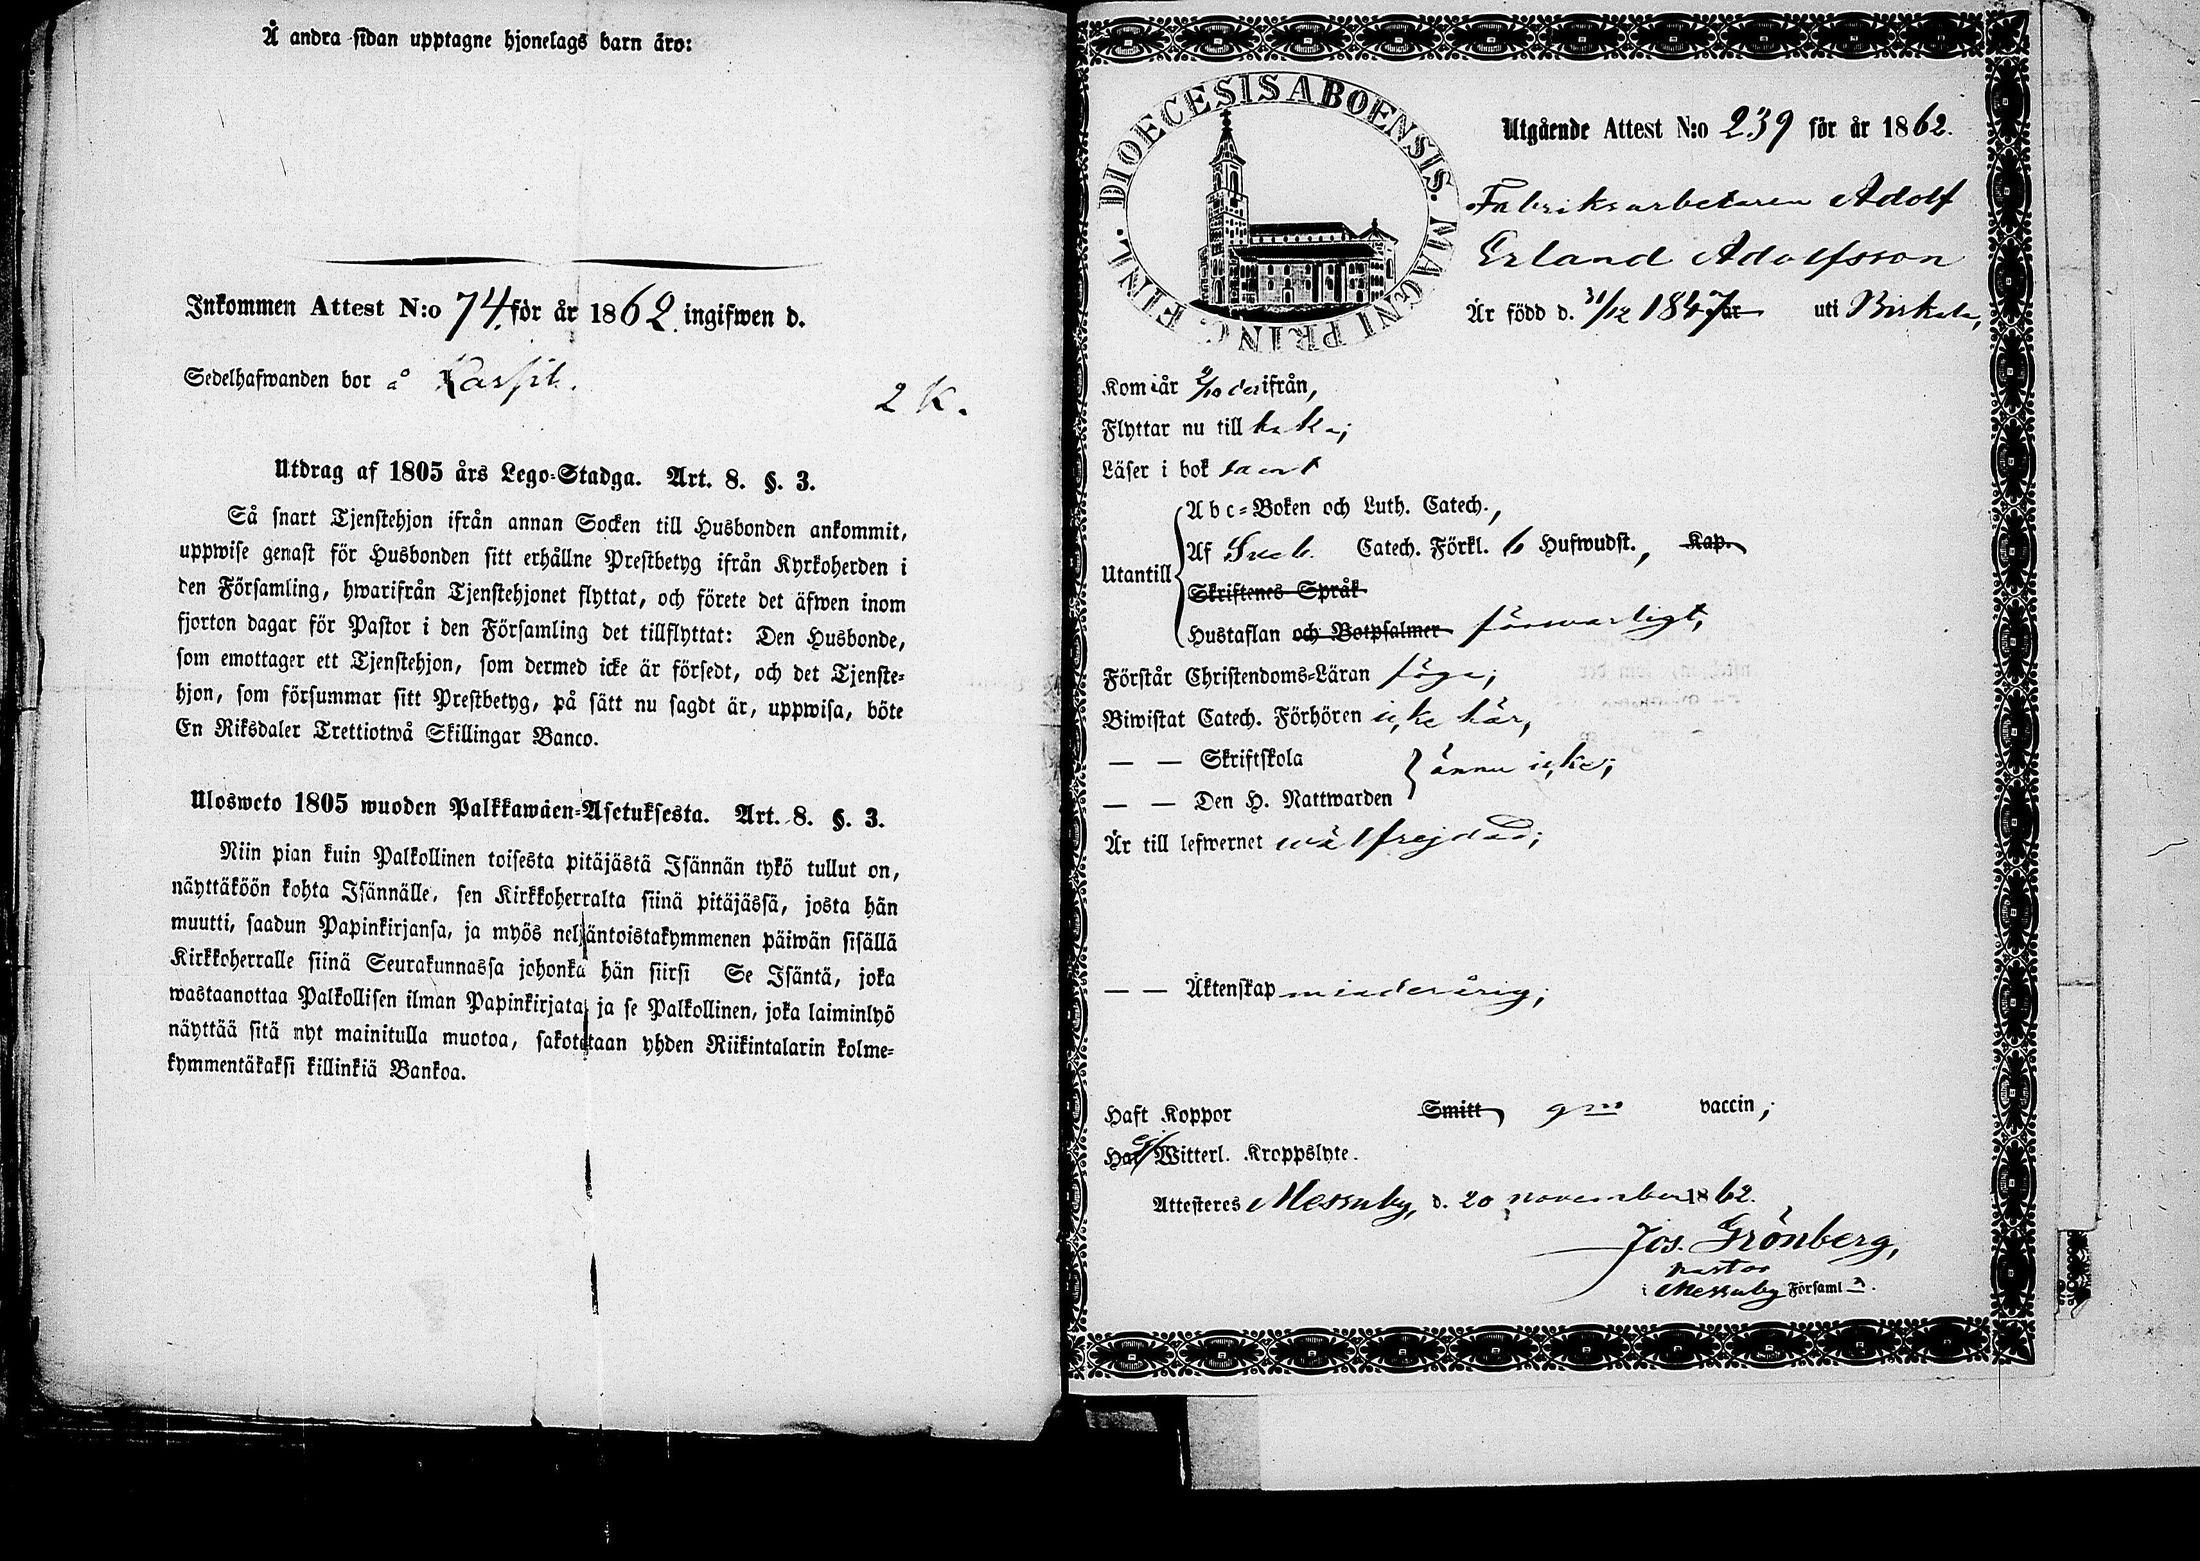 Å andra sidan upptagne hjonelags barn äro:
Inkommen Attest N:o 74 för år 1862. ingifwen d.
Sedelhafwanden bor å
2 K.
Utdrag af 1805 års Lego-Stadga. Art. 8. §. 3.
Så snart Tjenstehjon ifrån annan Socken till Husbonden ankommit,
uppwise genast för Husbonden sitt erhållne Prestbetyg ifrån Kyrkoherden i
den Församling, hwarifrån Tjenstehjonet flyttat, och förete det äfwen inom
fjorton dagar för Pastor i den Församling det tillflyttat: Den Husbonde,
som emottager ett Tjenstehjon, som dermed icke är försedt, och det Tjenste-
hjon, som försummar sitt Prestbetyg, på sätt nu sagdt är, uppwisa, böte
En Riksdaler Trettiotwå Skillingar Banco.
Ulosweto 1805 wuoden Palkkawäen-Asetuksesta. Art. 8. §. 3.
Niin pian kuin Palkollinen toisesta pitäjästä Isännän tykö tullut on,
näyttäköön kohta Isännälle, sen Kirkkoherralta siinä pitäjässä, josta hän
muutti, saadun Papinkirjansa, ja myös neljäntoistakymmenen päiwän sisällä
Kirkkoherralle siinä Seurakunnassa johonka hän siirsi Se Isäntä, joka
wastaanottaa Palkollisen ilman Papinkirjata, ja se Palkollinen, joka laiminlyö
näyttää sitä nyt mainitulla muotoa, sakotetaan yhden Riikintalarin kolme-
kymmentäkaksi killinkiä Bankoa.
DIOECESIS ABOENSIS. MAGNI PRINC. FINL.
Utgående Attest N:o 239 för år 1862.
Fabriksarbetaren Adolf
Erland Adolfsson
Är född d. 31/12 1847 år uti Birkala,
Kom i år derifrån,
Flyttar nu till baka;
Läser i bok samt
Utantill
Abc-Boken och Luth. Catech.,
Af Sveb. Catech. Förkl. 6 Hufwudst., Kap.
Skriftenes Språk
Hustaflan och Botpsalmer försvarligt,
Förstår Christendoms-Läran föga;
Biwistat Catech. Förhören icke här,
— — Skriftskola
ännu icke;
— — Den H. Nattwarden
Är till lefwernet wälfrejdad;
— — Äktenskap minderårig;
Haft Koppor Smitt, gm vaccin;
Har ej Witterl. Kroppslyte.
Attesteres Messuby, d. 20 november 1862.
Jos. Grönberg,
Pastor
i Messuby Församl n.